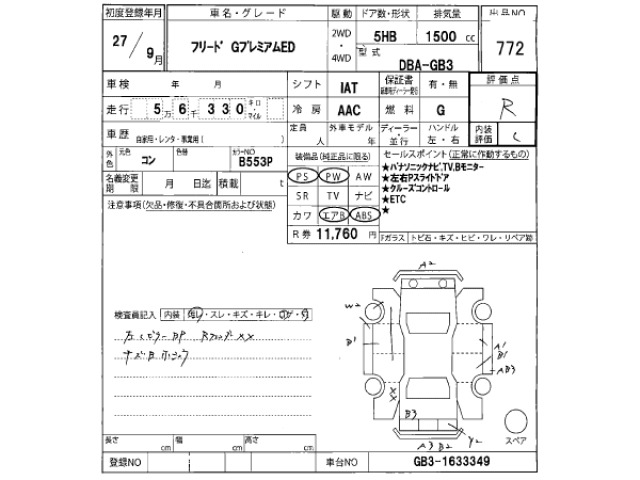 初度登録年月 車名・グレード 駆動 ドア数・形状 排気量 出品NO
27/9月 フリード GプレミアムED 2WD・4WD 5HB 1500cc 772
型式 DBA-GB3
車検 年 月 シフト IAT 保証書 有・無 評価点
走行 5万6千330キロ・マイル 冷房 AAC 燃料 G R
車歴 自家用・レンタ・事業用( ) 定員 人 外車モデル 年 ディーラー・並行 ハンドル 左・右 内装評価 C
外色 元色 コン 色替 カラーNO B553P
装備品(純正品に限る) セールスポイント(正常に作動するもの)
名義変更期限 月 日迄 積載 t
PS PW AW
SR TV ナビ
カワ エアB ABS
R券 11,760円
★パナソニックナビ,TV,Bモニター
★左右Pスライドドア
★クルーズコントロール
★ETC
★
Fガラス トビ石・キズ・ヒビ・ワレ・リペア跡
注意事項(欠品・修復・不具合箇所および状態)
検査員記入 内装
A2
W2
B1
A1
B1
AB3
XX
B3
A3 B2 Y2
スペア
長さ cm 幅 cm 高さ cm
登録NO 車台NO GB3-1633349